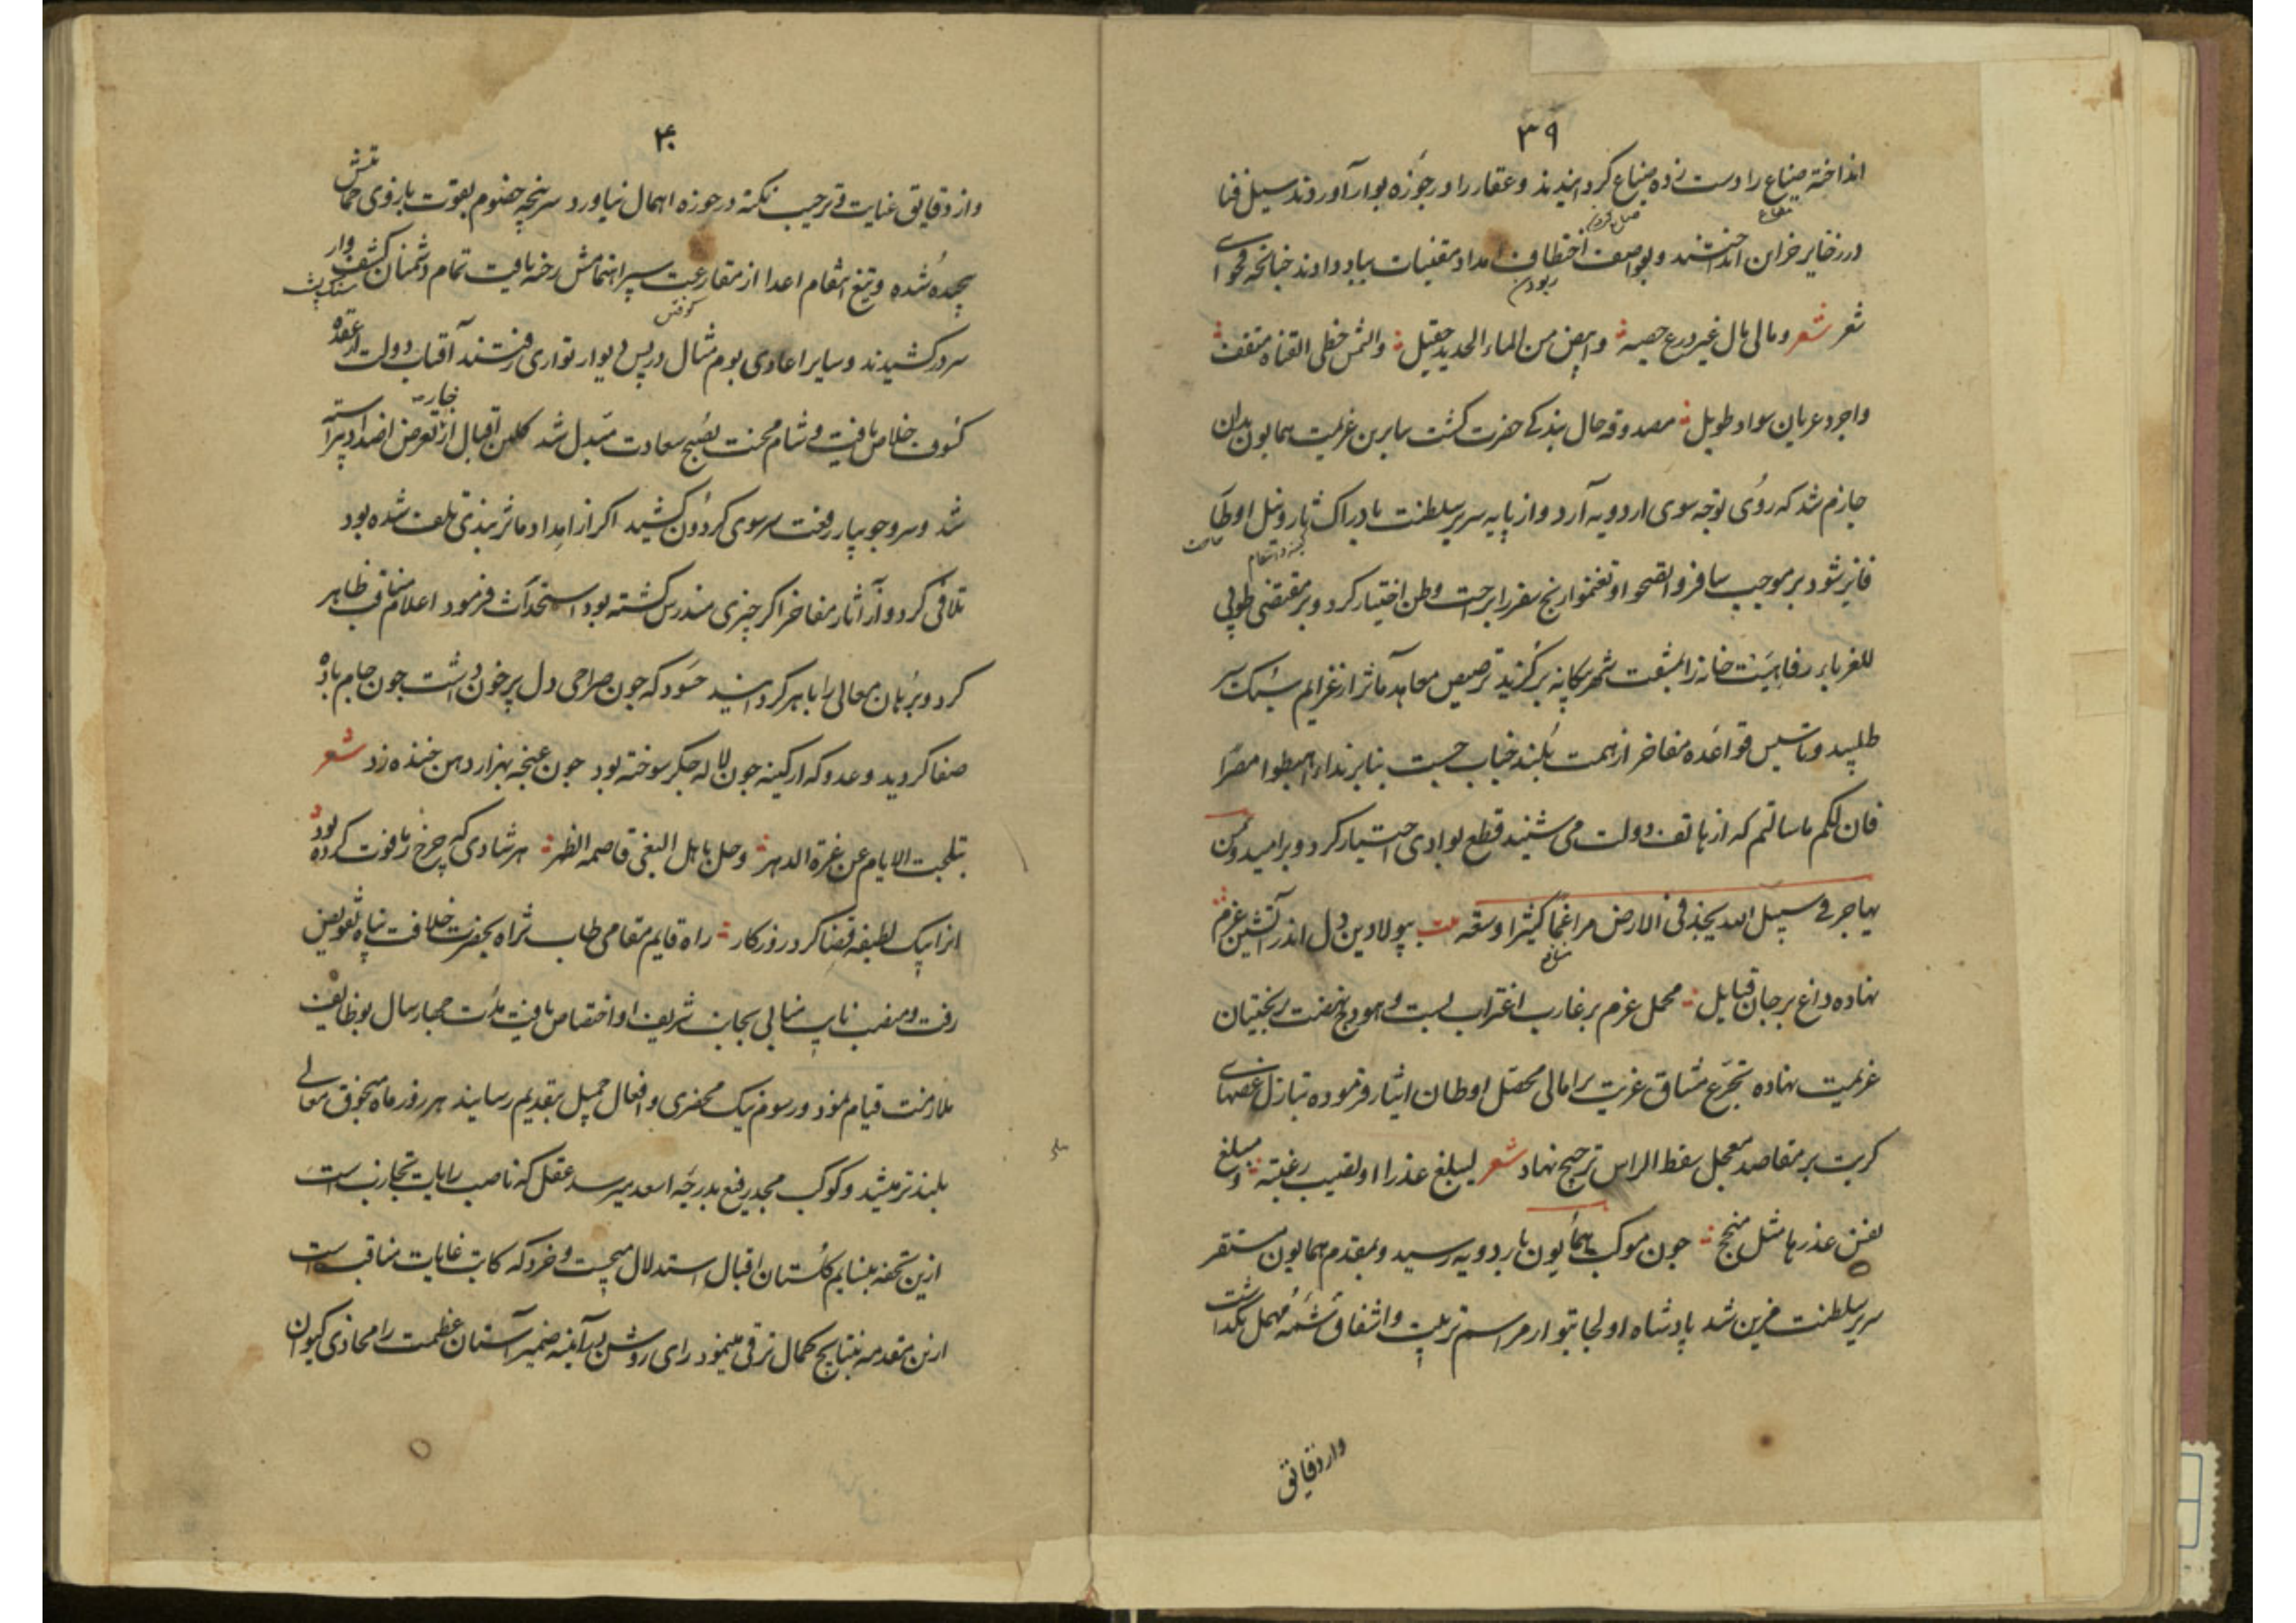 ۳۹
انداخته ضیاع را دست زده ضیاع کردانیدند و عقار را در حوزه بوار آوردند سیل فنا
در ذخایر خزاین انداختند و بعواصف اختطاف امداد مقتنیات بباد دادند چنانچه فحوای
ربودن
شعر شعر ومالی مال غیر درع حصینه وابیض من الماء الحدید صقیل
واجرد عریان سواد طویل مصدوقه حال بندکی حضرت کشت بنابرین عزیمت همایون بدان
جازم شد که روی توجه سوی اردویه آرد و از پایه سریر سلطنت بادراک ثار و نیل اوطار
فایز شود بر موجب سافروا تصحوا وتغنموا رنج سفر را بر راحت وطن اختیار کرد و بر مقتضی طوبی
للغرباء رفاهیت خانه را بمشقت شهر بیکانه برکزید ترصیص معاهد مآثر از عزایم سبک سیر
طلبید و تاسیس قواعده مفاخر از همت بلند جناب جست بنابر ندا اهبطوا مصرا
فان لکم ما سالتم که از هاتف دولت می شنید قطع بوادی اختیار کرد و بر امید ومن
یهاجر فی سبیل الله یجد فی الارض مراغما کثیرا وسعة بیت بپولادین دل اندر آتشین عزم
نهاده داغ بر جان قبایل محمل عزم بر غارب اغتراب بست و هودج نهضت بر بختیان
عزیمت نهاده تجرع مشاق غربت بر امالی محصل اوطان ایثار فرموده تبازل غصهای
کربت بر مقاصد معجل سقط الراس ترجیح نهاد شعر لیبلغ عذرا او یصیب رغیبة ومبلغ
نفس عذرها مثل منجح چون موکب همایون باردویه رسید و بمقدم همایون مستقر
سریر سلطنت مزین شد پادشاه اولجایتو از مراسم تربیت و اشفاق شمه مهمل نکذاشت
واز دقایق
۴۰
واز دقایق عنایت و ترحیب نکته در حوزه اهمال نیاورد سرپنجه خصوم بقوت بازوی حمایتش
پیچیده شده و تیغ انتقام اعدا از مقارعت سپر اهتمامش رخنه یافت تمام دشمنان کشف وار
کوفتن
سنک پشت
سر درکشیدند و سایر اعادی بوم مثال در پس دیوار تواری رفتند آفتاب دولت از عقده
کسوف خلاص یافت و شام محنت بصبح سعادت مبدل شد کلبن اقبال از خار تعرض اضداد پیراسته
شد و سرو جویبار رفعت سر سوی کردون کشید اکر از امداد مآثر بندی تلف شده بود
تلافی کرد و از آثار مفاخر اکر چیزی مندرس کشته بود استحداث فرمود اعلام مناقب ظاهر
کرد و برهان معالی را باهر کردانید حسود که چون صراحی دل پر خون داشت چون جام باده
صفا کردید و عدو که از کینه چون لاله جکر سوخته بود چون غنچه بهزار دهن خنده زد شعر
تبلجت الایام عن غرة الدهر وحل باهل البغی قاصمة الظهر هر شادی که چرخ ز ما فوت کرده بود
انرا بیک لطیفه قضا کرد روزکار راه قایم مقامی طاب ثراه بحضرت خلافت پناه تفویض
رفت و منصب نایب منابی بجانب شریف او اختصاص یافت مدت چهار سال بوظایف
ملازمت قیام نمود و رسوم نیک محضری و افعال جمیل بتقدیم رسانید هر روز ماه سنجوق معالی
بلندتر میشد و کوکب مجد رفیع بدرجه اسعد میرسد عقل که ناصب رایات تجارب است
ازین تحفه بنسایم کلستان اقبال استدلال میجست و خرد که کاتب غایات مناقب است
ازین مقدمه بنتایج کمال ترقی مینمود رای روشن بر آینه ضمیر آستان عظمت را محاذی کیوان